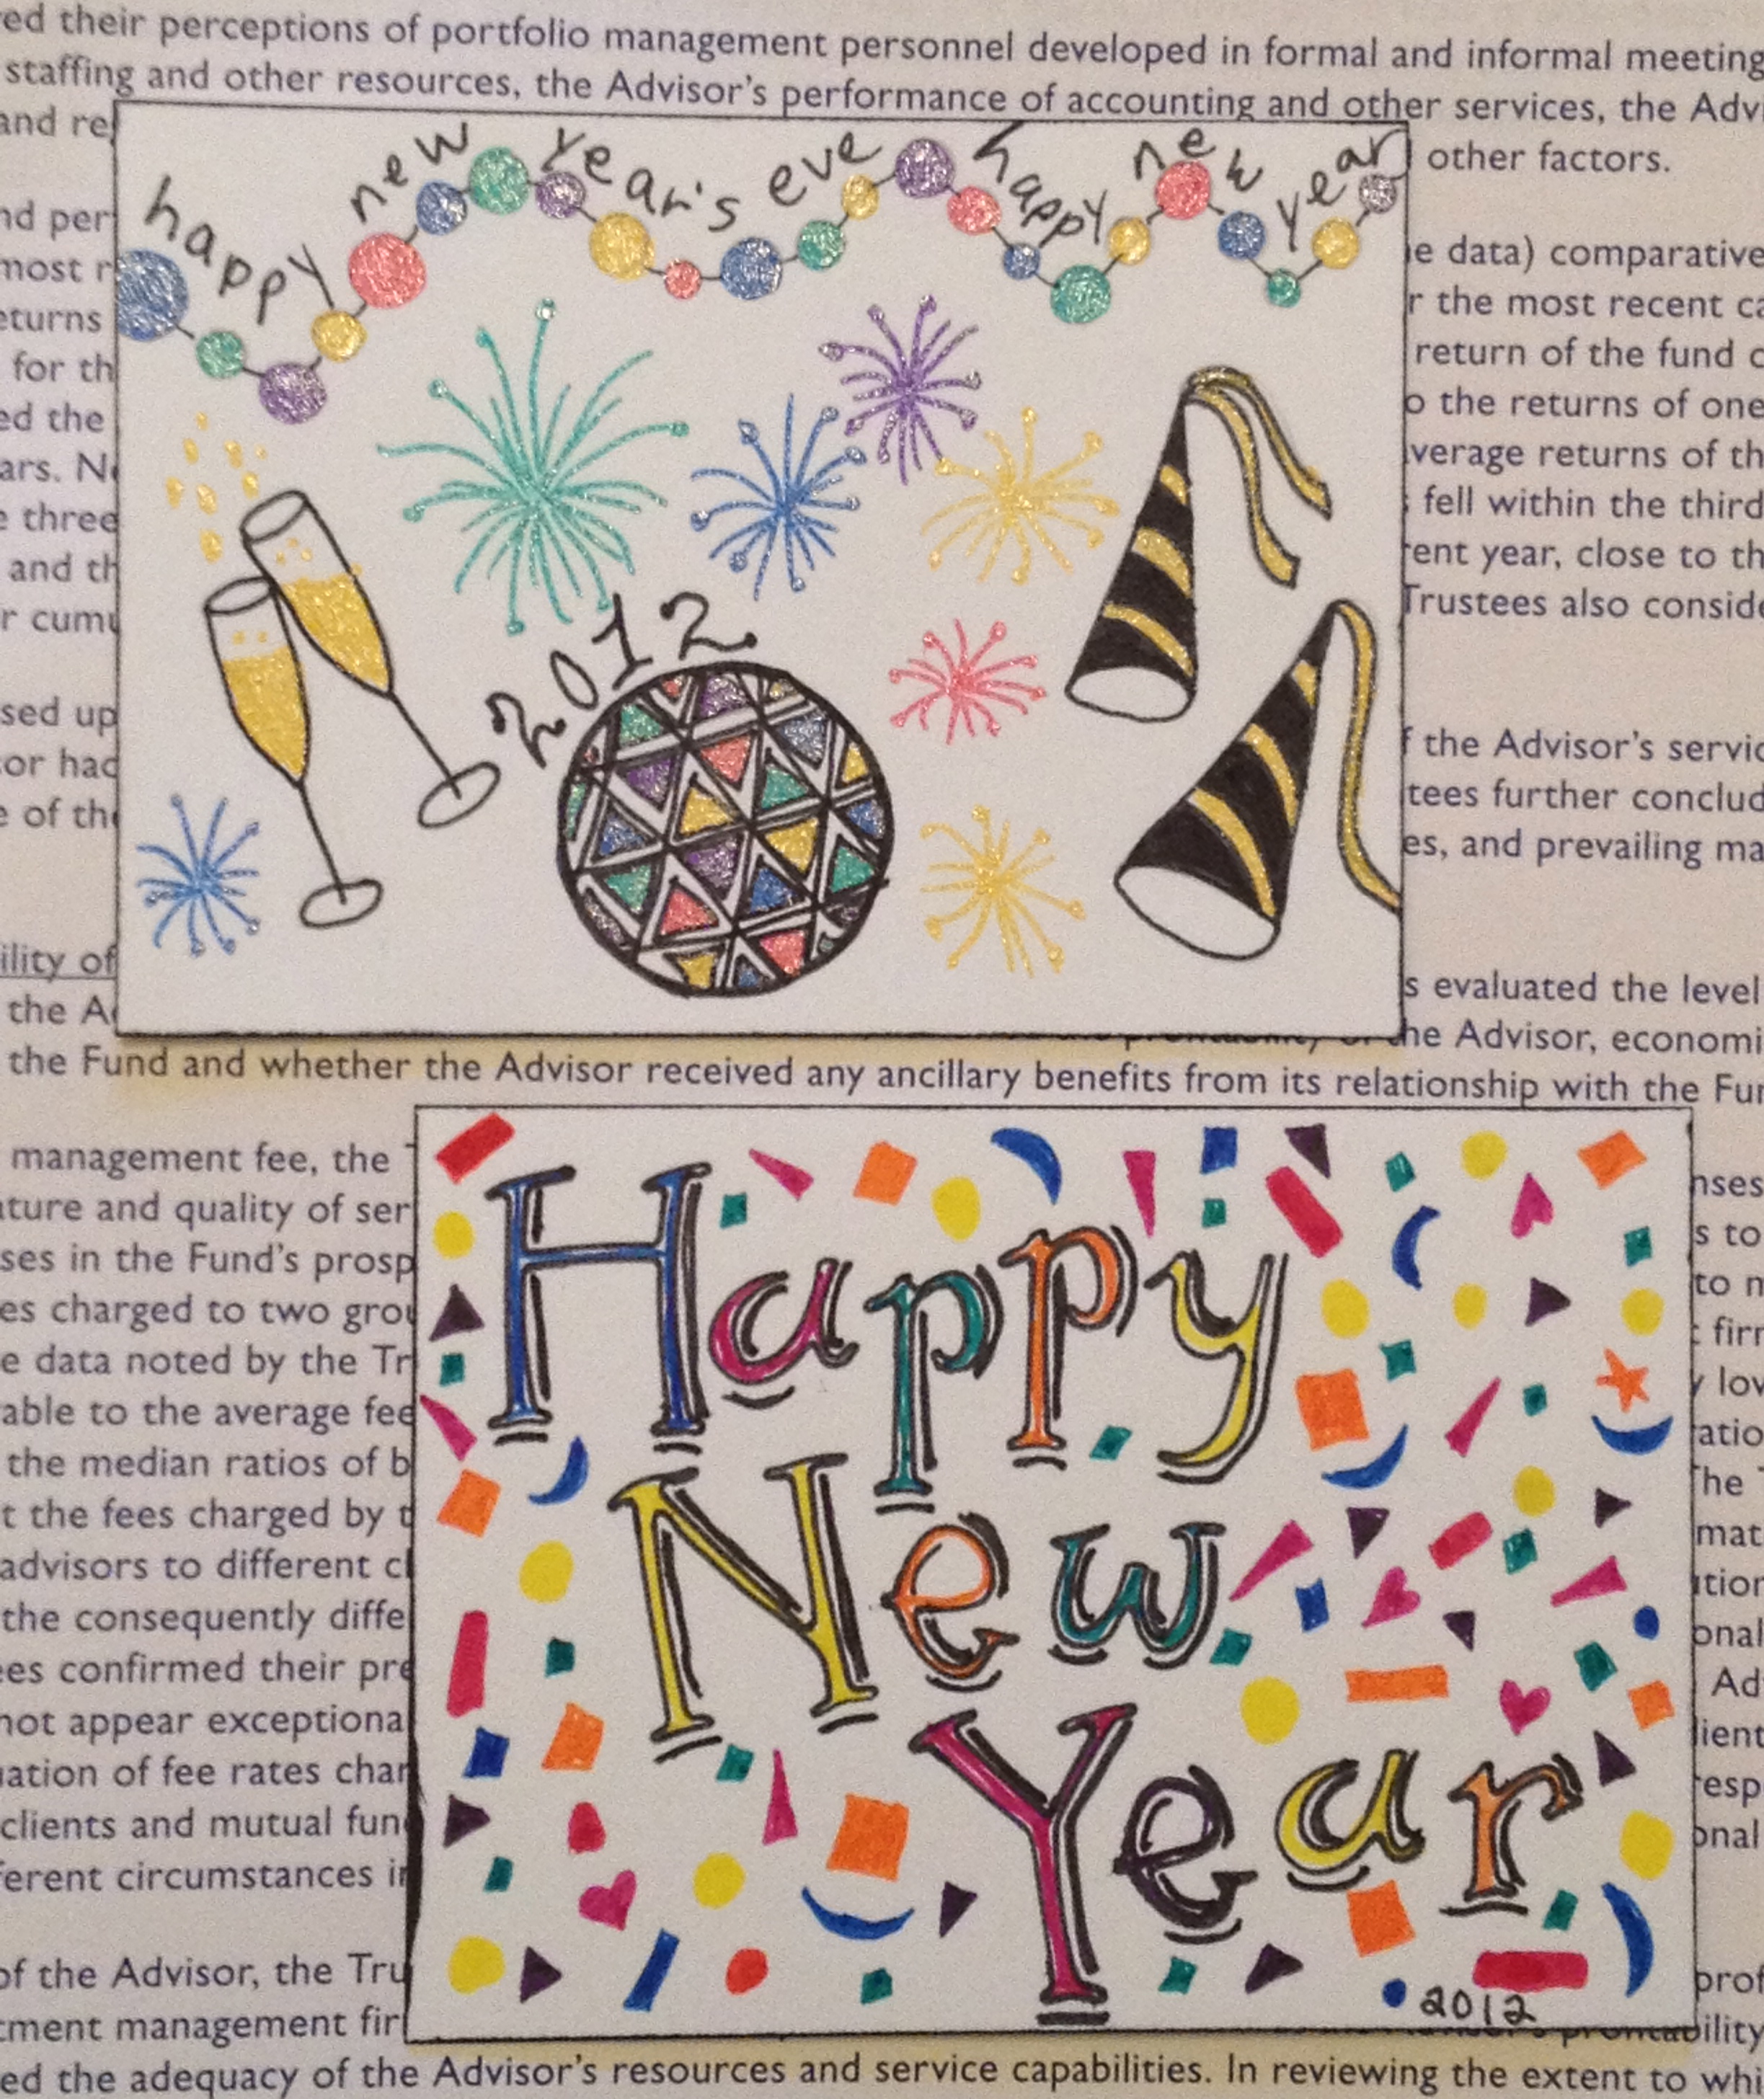 ed their perceptions of portfolio management personnel developed in formal and informal meeting
staffing and other resources, the Advisor's performance of accounting and other services, the Adv
and re
other factors.
happy new year's eve happy new year
2012
nd per
most r
eturns
for th
ed the
ars. N
e three
and th
r cumu
sed up
or had
e of the
ility of
the A
e data) comparative
r the most recent ca
return of the fund c
o the returns of one
verage returns of th
fell within the third
rent year, close to th
Trustees also conside
f the Advisor's servic
tees further conclud
es, and prevailing ma
s evaluated the level
he Advisor, economi
the Fund and whether the Advisor received any ancillary benefits from its relationship with the Fun
management fee, the
ature and quality of ser
ses in the Fund's prosp
es charged to two grou
e data noted by the Tr
able to the average fee
the median ratios of b
t the fees charged by t
advisors to different cl
the consequently diffe
ees confirmed their pre
not appear exceptiona
uation of fee rates char
clients and mutual fun
ferent circumstances in
of the Advisor, the Tru
tment management fir
Happy
New
Year
2012
nses
s to
to n
firn
low
atio
he
mat
tion
onal
Ad
lient
esp
onal
prof
ility
ed the adequacy of the Advisor's resources and service capabilities. In reviewing the extent to wh